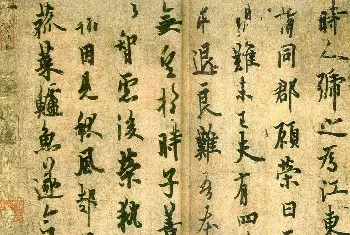 時人號之為江東
謂同郡顧榮曰天
難未已夫有四
求退良難吾本
無望於時子善
以智慮後榮執
翰因見秋風起
菰菜鱸魚遂命